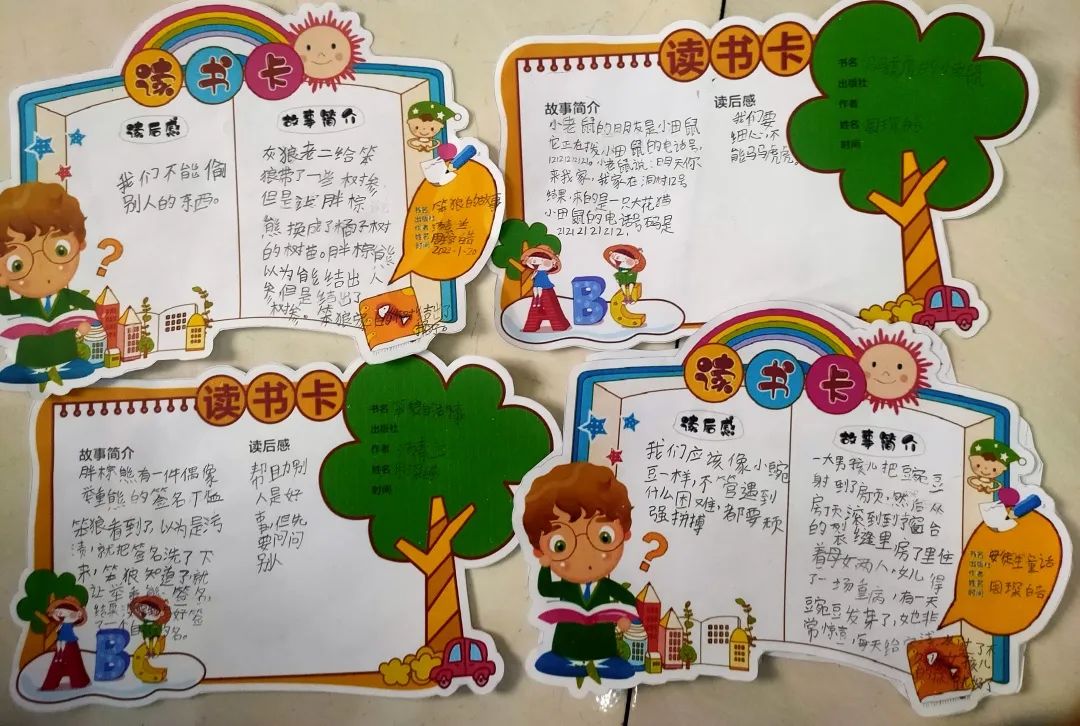 读书卡
读后感
我们不能偷
别人的东西。
故事简介
灰狼老二给笨
狼带了一些树掺，
但是被胖棕
熊换成了橘子树
的树苗。胖棕熊
以为能结出人
参但是结出了
书名 笨狼的故事
出版社
作者 汤素兰
姓名
时间 2022-1-20
读书卡
故事简介
小老鼠的朋友是小田鼠
它正在找小田鼠的电话号，
小老鼠说：明天你
来我家，我家在洞村12号
结果，来的是一只大花猫
小田鼠的电话号码是
21212121212，
读后感
我们要
细心，不
能马马虎虎
书名
出版社
作者
姓名
时间
ABC
读书卡
故事简介
胖棕熊有一件偶像
熊的签名T恤
笨狼看到了以为是污
渍，就把签名洗了下
来，笨狼知道了就
读后感
帮助别
人是好
事，但先
要问问
别人
书名
出版社
作者 汤素兰
姓名
时间
ABC
读书卡
读后感
我们应该像小豌
豆一样，不管遇到
什么困难，都要顽
强拼搏
故事简介
一大男孩儿把豌豆
射到了房顶，然后从
房顶滚到到窗台
的裂缝里，房子里住
着母女两人，女儿得
了一场重病，有一天
豌豆发芽了，她非
常惊喜，每天给
书名 安徒生童话
出版社
作者
姓名 周琛皓
时间